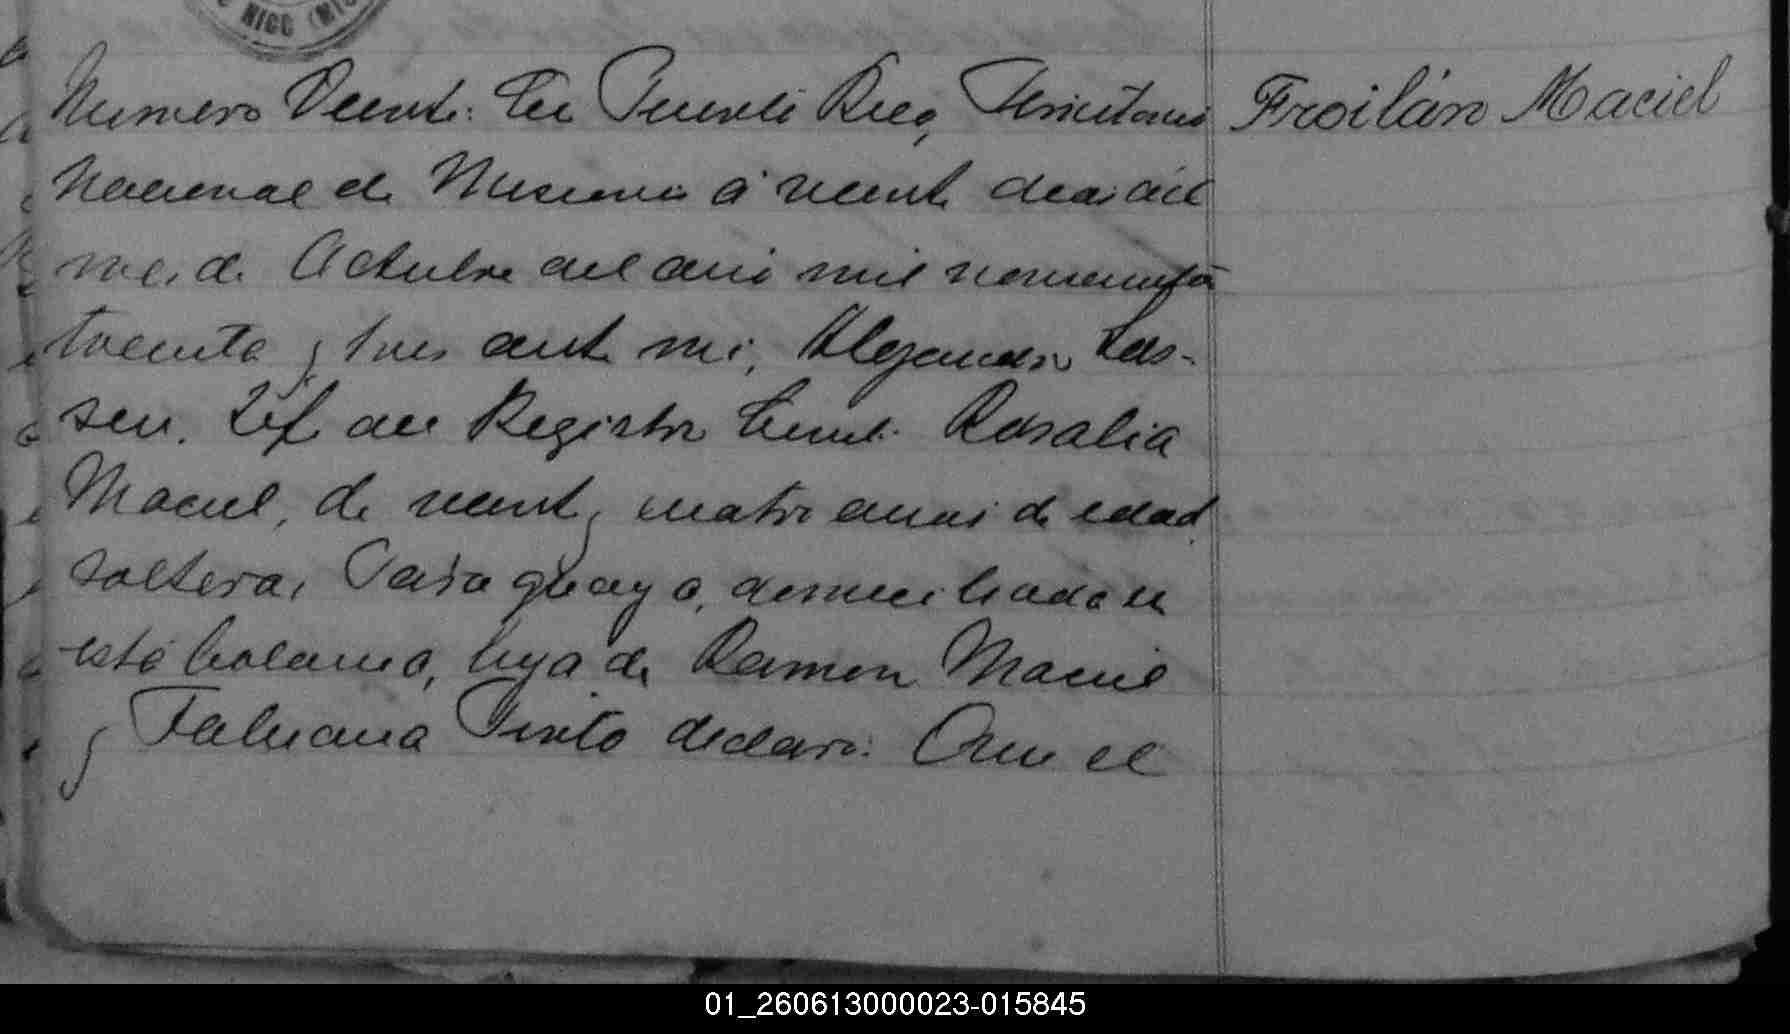 NICO (MIS
Numero Veinte: En Puerto Rico, Territorio
Froilán Maciel
Nacional de Misiones á veinte dias del
mes de Octubre del año mil novecientos
treinta y tres ante mi, Alejandro Las-
sen. Jefe del Registro Civil. Rosalia
Maciel, de veinte y cuatro años de edad
soltera, Paraguaya, domiciliada en
esta Colonia, hija de Ramon Maciel
y declaró: Que el
01_260613000023-015845